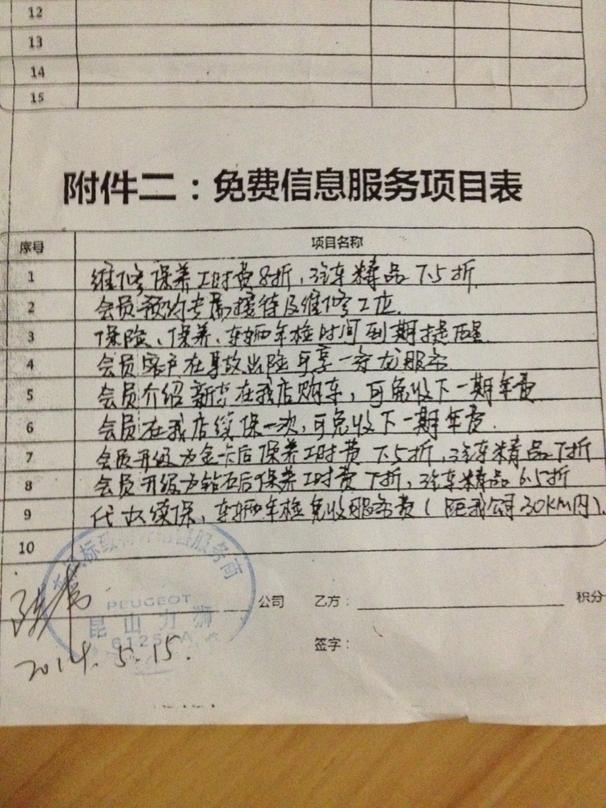 12
13
14
15
附件二：免费信息服务项目表
序号 项目名称
1 维修保养工时费8折，汽车精品7.5折
2 会员预约专属接待及维修工位
3 保险、保养、车辆年检时间到期提醒
4 会员客户在事故出险可享一条龙服务
5 会员介绍新客在我店购车，可免收下一期年费
6 会员在我店续保一次，可免收下一期年费.
7 会员升级为金卡后保养工时费7.5折，汽车精品7折
8 会员升级为钻石后保养工时费7折，汽车精品6.5折
9 代办续保，车辆年检免收服务费（距我公司30KM内）.
10
服务商
PEUGEOT
昆山力狮
公司 乙方： 积分
签字：
2014.5.15.